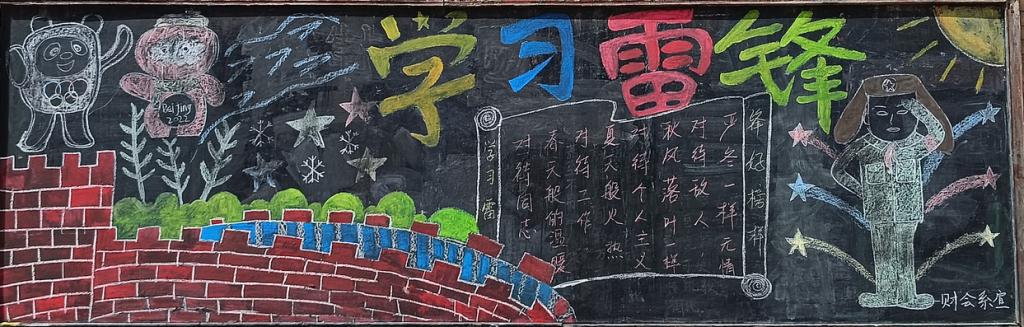 学习雷锋
Beijing
2022
学习雷
对待同志
春天般的温暖
对待工作
夏天般火热
对待个人主义
秋风落叶一样
对待敌人
严冬一样无情
锋好榜样
财会系宣